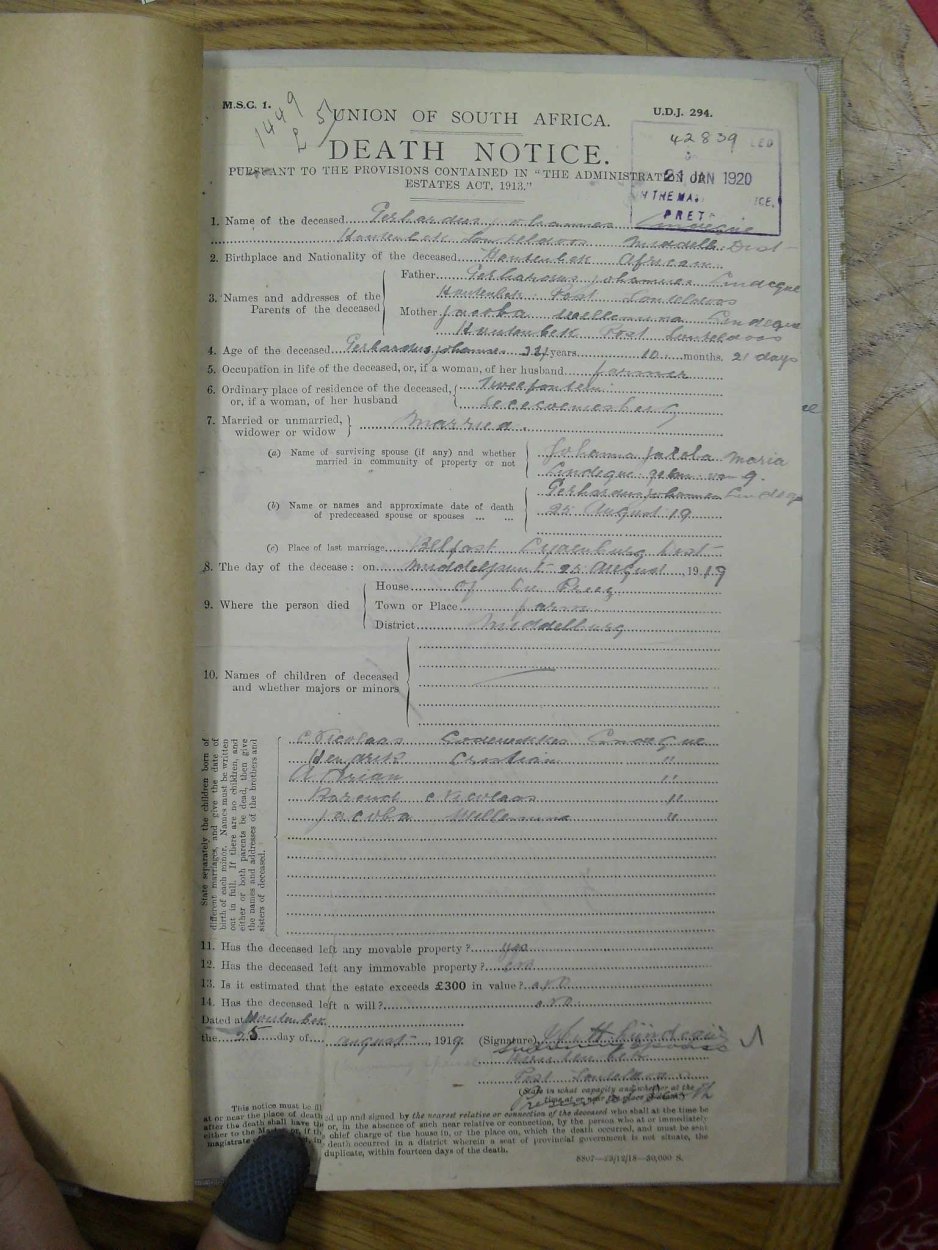 M.S.C. 1.
1449
£ 5/
UNION OF SOUTH AFRICA.
U.D.J. 294.
42839
21 JAN 1920
PRET
DEATH NOTICE.
PURSUANT TO THE PROVISIONS CONTAINED IN "THE ADMINISTRATION OF
ESTATES ACT, 1913."
1. Name of the deceased Gerhardus Johannes Lindeque
Houtenbek Middelb Dist
2. Birthplace and Nationality of the deceased Houtenbek African
3. Names and addresses of the Parents of the deceased
Father Gerhardus Johannes Lindeque
Houtenbek Post
Mother Jacoba Willemina Lindeque
Houtenbek Post
4. Age of the deceased Gerhardus Johannes years 10 months. 21 days
5. Occupation in life of the deceased, or, if a woman, of her husband farmer
6. Ordinary place of residence of the deceased, or, if a woman, of her husband
Tweefontein
7. Married or unmarried, widower or widow Married.
(a) Name of surviving spouse (if any) and whether married in community of property or not
Johanna Jacoba Maria
Lindeque
(b) Name or names and approximate date of death of predeceased spouse or spouses ... ...
Gerhardus Johannes Lindeque
25 August 19
(c) Place of last marriage Belfast Lydenburg Dist
8. The day of the decease: on August 1919
9. Where the person died
House
Town or Place farm
District Middelburg
10. Names of children of deceased and whether majors or minors
State separately the children born of
different marriages, and give the date of
birth of each minor. Names must be written
out in full. If there are no children, and
either or both parents be dead, then give
the names and addresses of the brothers and
sisters of deceased.
Nicolaas Lindeque
Hendrik Cristian "
Adrian "
Barend Nicolaas "
Jacoba Willemina "
11. Has the deceased left any movable property? yes
12. Has the deceased left any immovable property?
13. Is it estimated that the estate exceeds £300 in value? no
14. Has the deceased left a will? no
Dated at Houtenbek
the 25 day of august, 1919. (Signature) Lindeque
Houtenbek
Post
(State in what capacity and whether at the
time at or near the place of death.)
This notice must be filled up and signed by the nearest relative or connection of the deceased who shall at the time be
at or near the place of death or, in the absence of such near relative or connection, by the person who at or immediately
after the death shall have the chief charge of the house in, or the place on, which the death occurred, and must be sent
either to the Master or, if the death occurred in a district wherein a seat of provincial government is not situate, the
magistrate duplicate, within fourteen days of the death.
8807—13/12/18—30,000 S.